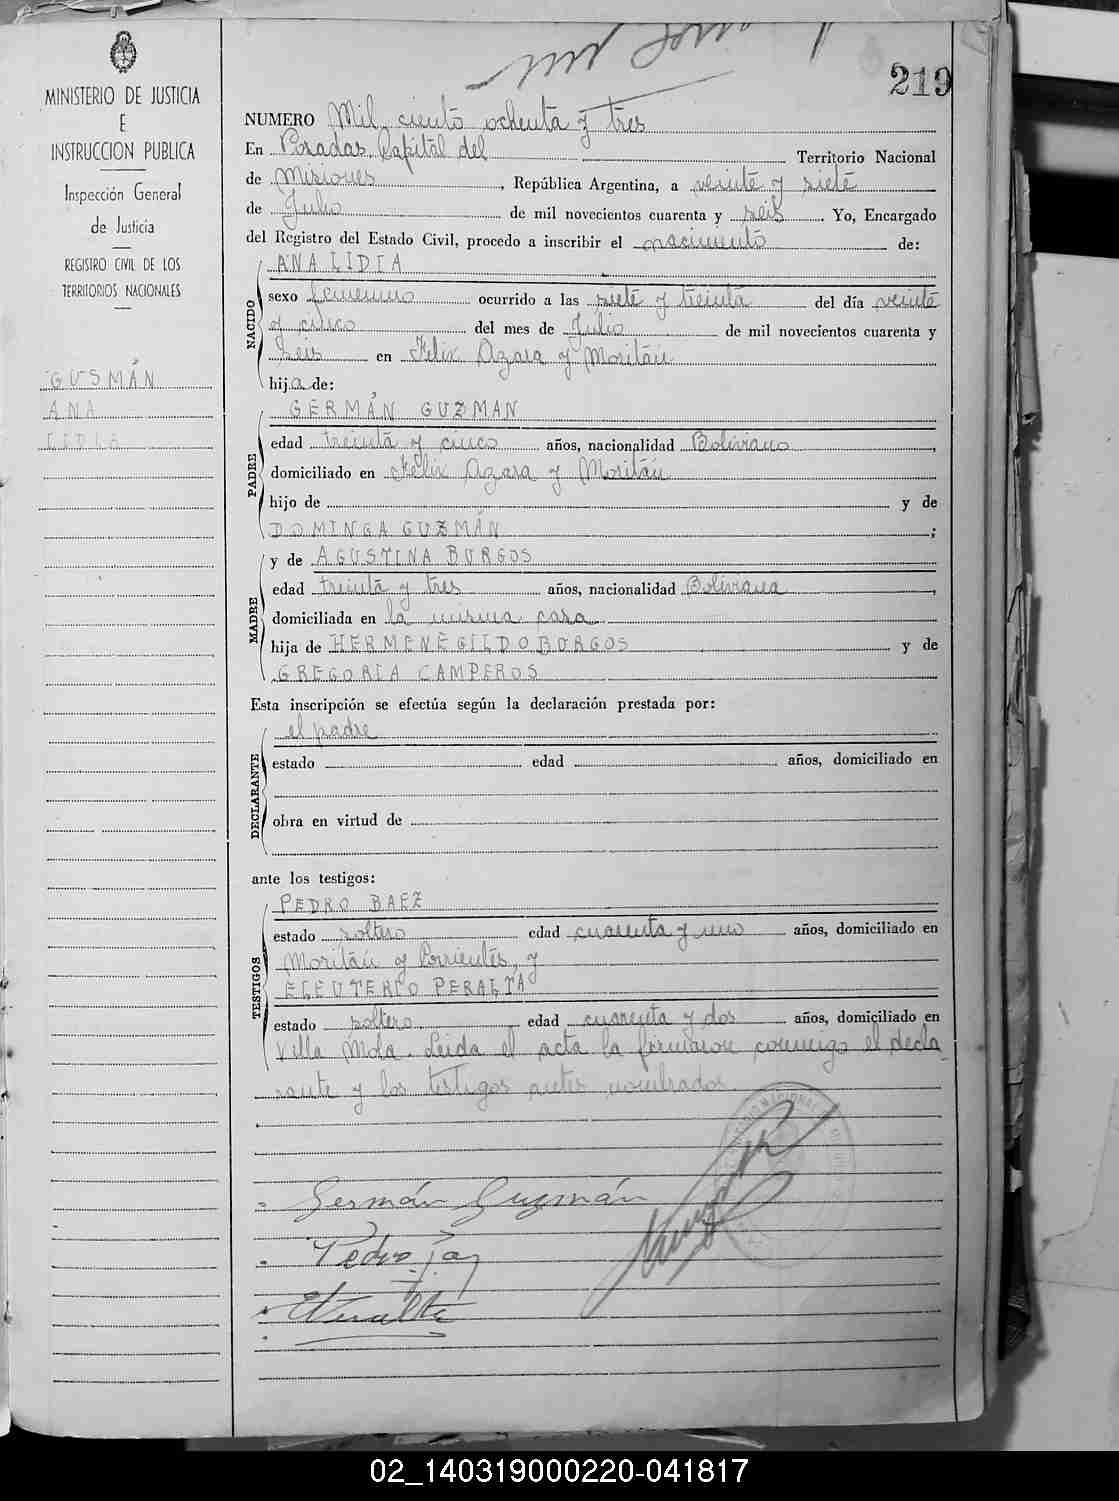 219
MINISTERIO DE JUSTICIA
E
INSTRUCCION PUBLICA
Inspección General
de Justicia
REGISTRO CIVIL DE LOS
TERRITORIOS NACIONALES
GUSMÁN
ANA
LIDIA
NUMERO Mil ciento ochenta y tres
En Posadas, Capital del Territorio Nacional
de Misiones, República Argentina, a veinte y siete
de Julio de mil novecientos cuarenta y seis. Yo, Encargado
del Registro del Estado Civil, procedo a inscribir el nacimiento de:
NACIDO
ANA LIDIA
sexo femenino ocurrido a las siete y treinta del día veinte
y cinco del mes de Julio de mil novecientos cuarenta y
seis en Felix Azara y Moritán
hija de:
PADRE
GERMÁN GUZMAN
edad treinta y cinco años, nacionalidad Boliviano,
domiciliado en Felix Azara y Moritán
hijo de y de
DOMINGA GUZMÁN;
MADRE
y de AGUSTINA BURGOS
edad treinta y tres años, nacionalidad Boliviana,
domiciliada en la misma casa
hija de HERMENEGILDO BURGOS y de
GREGORIA CAMPEROS
Esta inscripción se efectúa según la declaración prestada por:
DECLARANTE
el padre
estado edad años, domiciliado en
obra en virtud de
ante los testigos:
TESTIGOS
PEDRO BAEZ
estado soltero edad cuarenta y uno años, domiciliado en
Moritán y Corrientes, y
ELEUTERIO PERALTA
estado soltero edad cuarenta y dos años, domiciliado en
Villa Mola. Leida el acta la firmaron conmigo el decla
rante y los testigos antes nombrados.
Germán Guzmán
Pedro
02_140319000220-041817